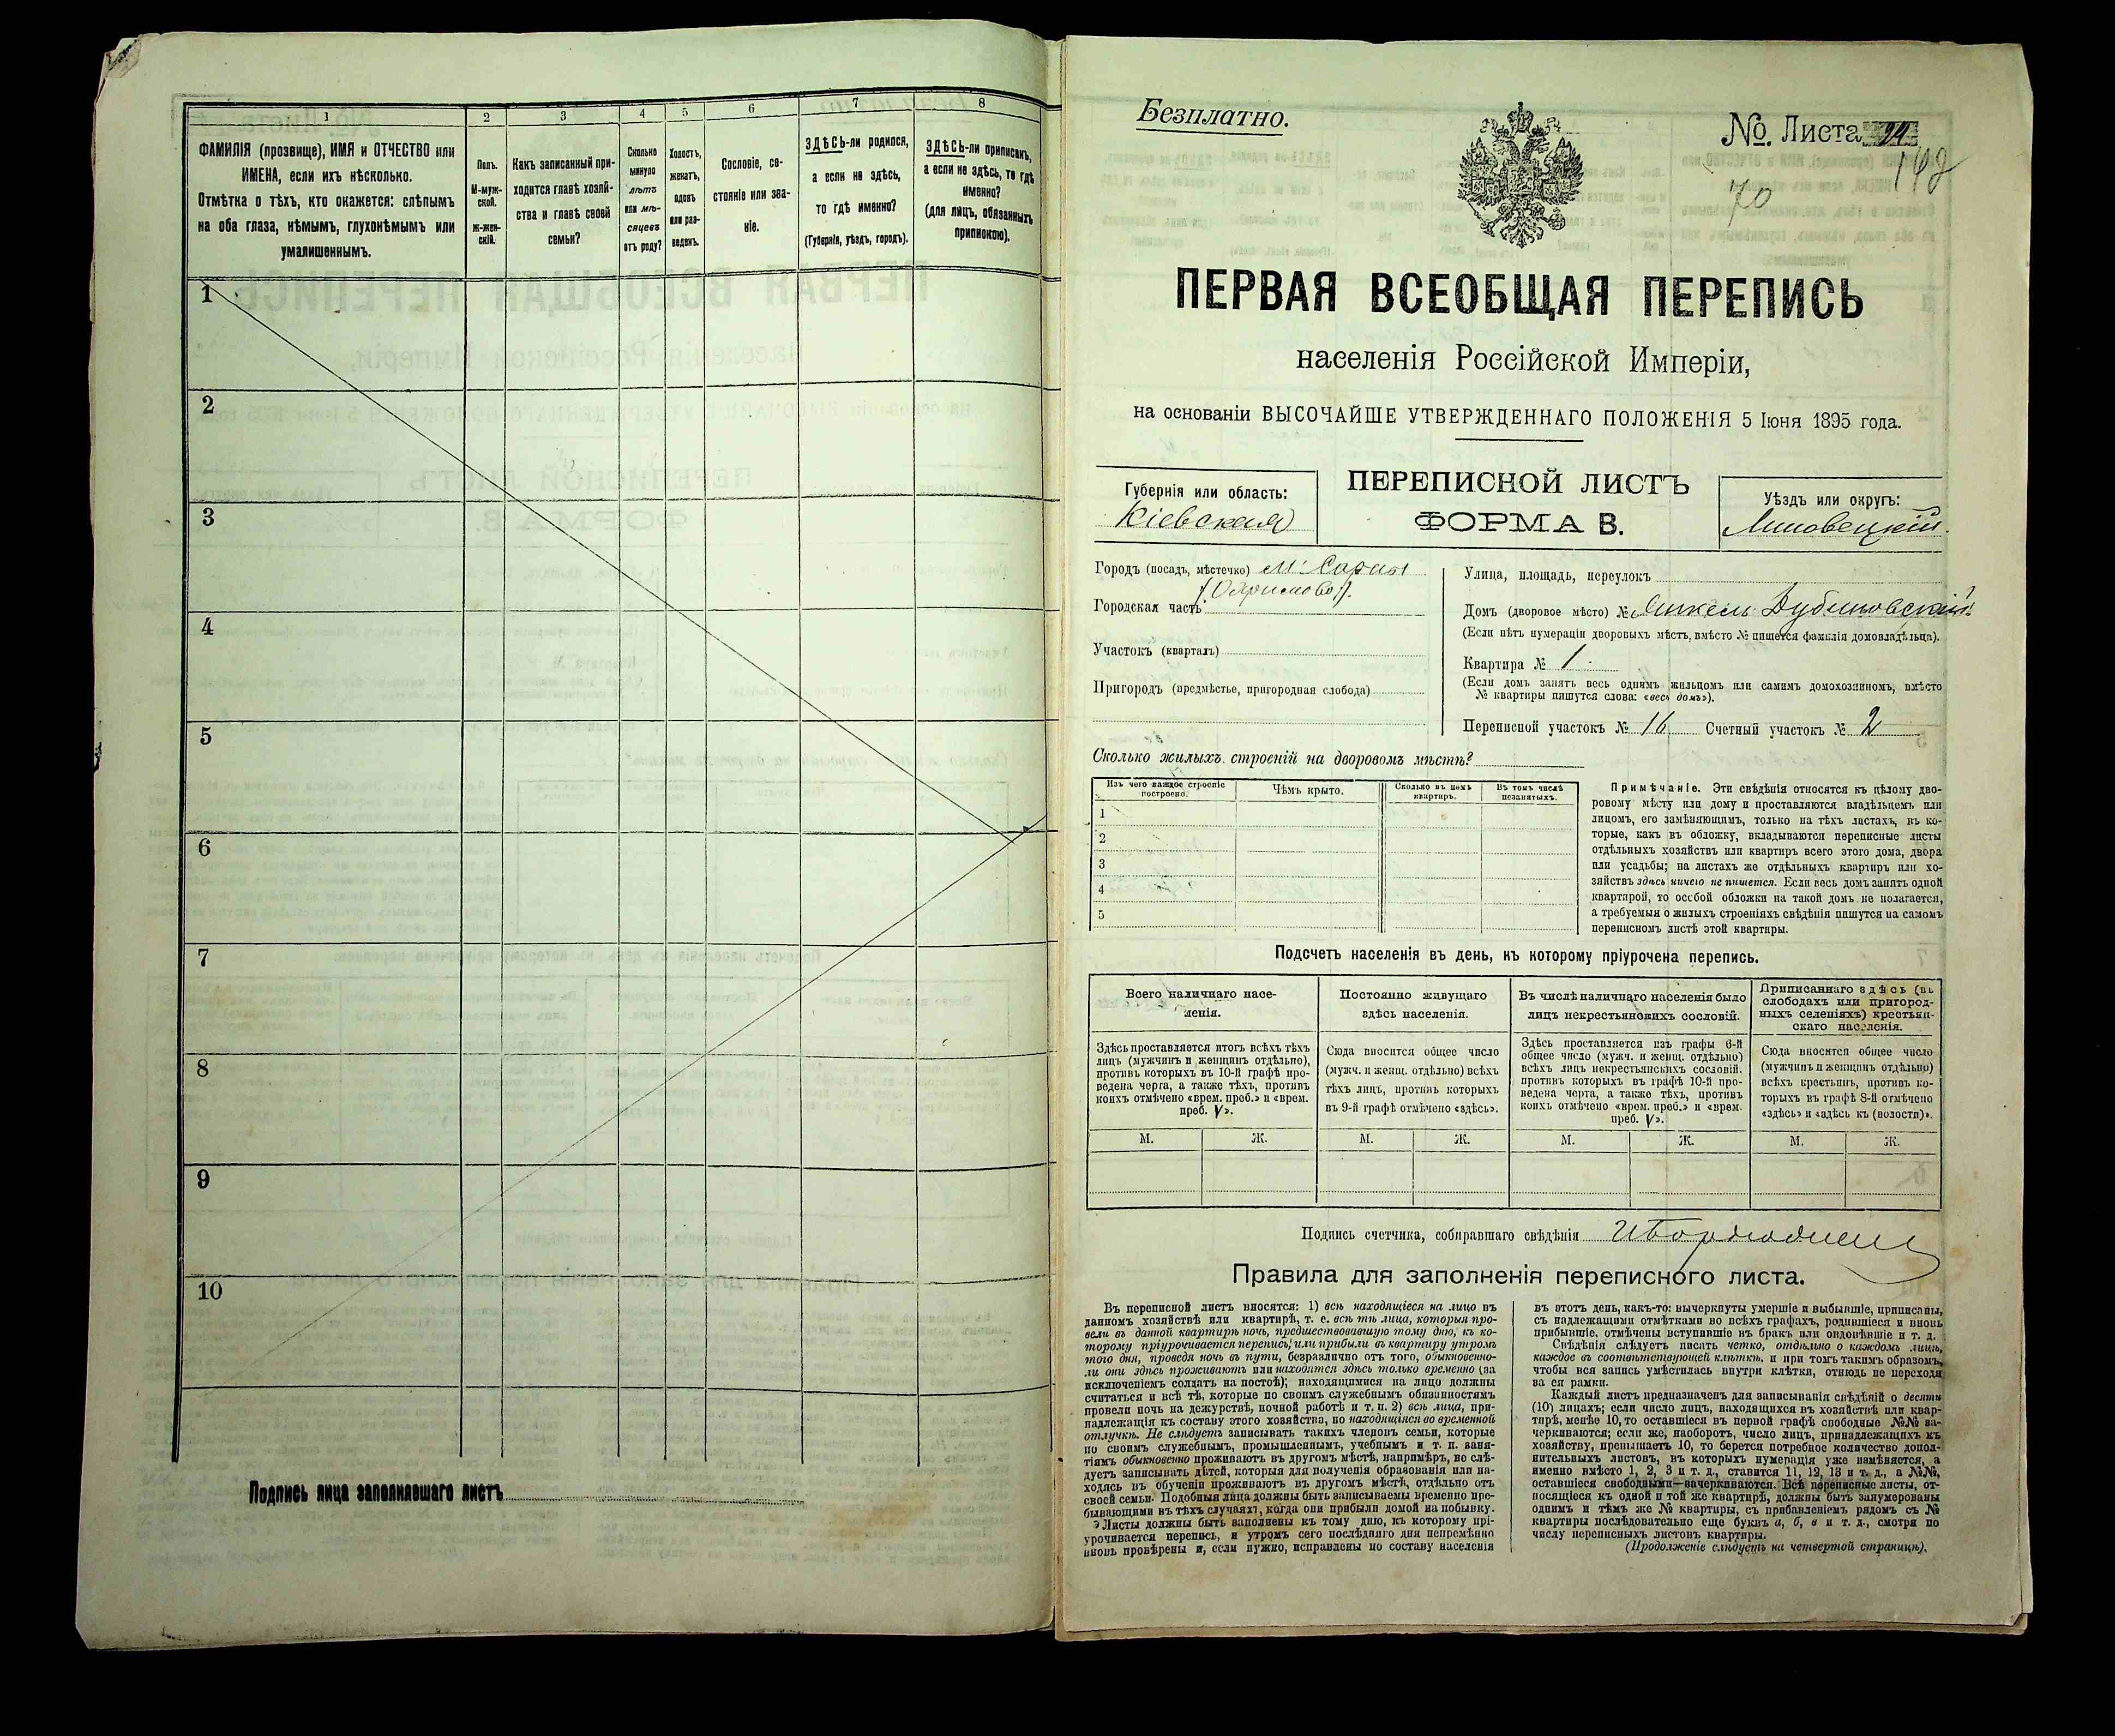 1
2
3
4
5
6
7
8
ФАМИЛІЯ (прозвище), ИМЯ и ОТЧЕСТВО или
ИМЕНА, если ихъ нѣсколько.
Отмѣтка о тѣхъ, кто окажется: слѣпымъ
на оба глаза, нѣмымъ, глухонѣмымъ или
умалишеннымъ.
Полъ.
М-муж-
ской.
ж-жен-
скій.
Какъ записанный при-
ходится главѣ хозяй-
ства и главѣ своей
семьи?
Сколько
минуло
лѣтъ
или мѣ-
сяцевъ
отъ роду?
Холостъ,
женатъ,
вдовъ
или раз-
веденъ.
Сословіе, со-
стояніе или зва-
ніе.
ЗДѢСЬ-ли родился,
а если не здѣсь,
то гдѣ именно?
(Губернія, уѣздъ, городъ).
ЗДѢСЬ-ли приписанъ,
а если не здѣсь, то гдѣ
именно?
(для лицъ, обязанныхъ
припискою).
1
2
3
4
5
6
7
8
9
10
Подпись лица заполнявшаго листъ
Безплатно.
№. Листа 24
198
70
ПЕРВАЯ ВСЕОБЩАЯ ПЕРЕПИСЬ
населенія Россійской Имперіи,
на основаніи ВЫСОЧАЙШЕ УТВЕРЖДЕННАГО ПОЛОЖЕНІЯ 5 Іюня 1895 года.
Губернія или область:
Кіевская
ПЕРЕПИСНОЙ ЛИСТЪ
ФОРМА В.
Уѣздъ или округъ:
Липовецкій
Городъ (посадъ, мѣстечко) м. Сараи
(Охримово).
Городская часть
Участокъ (кварталъ)
Пригородъ (предмѣстье, пригородная слобода)
Улица, площадь, переулокъ
Домъ (дворовое мѣсто) № Янкель Дубиновскій
(Если нѣтъ нумераціи дворовыхъ мѣстъ, вмѣсто № пишется фамилія домовладѣльца).
Квартира № 1
(Если домъ занятъ весь однимъ жильцомъ или самимъ домохозяиномъ, вмѣсто
№ квартиры пишутся слова: «весь домъ»).
Переписной участокъ № 16 Счетный участокъ № 2
Сколько жилыхъ строеній на дворовомъ мѣстѣ?
Изъ чего каждое строеніе
построено.
Чѣмъ крыто.
Сколько въ немъ
квартиръ.
Въ томъ числѣ
незанятыхъ.
1
2
3
4
5
Примѣчаніе. Эти свѣдѣнія относятся къ цѣлому дво-
ровому мѣсту или дому и проставляются владѣльцемъ или
лицомъ, его замѣняющимъ, только на тѣхъ листахъ, въ ко-
торые, какъ въ обложку, вкладываются переписные листы
отдѣльныхъ хозяйствъ или квартиръ всего этого дома, двора
или усадьбы; на листахъ же отдѣльныхъ квартиръ или хо-
зяйствъ здѣсь ничего не пишется. Если весь домъ занятъ одной
квартирой, то особой обложки на такой домъ не полагается,
а требуемыя о жилыхъ строеніяхъ свѣдѣнія пишутся на самомъ
переписномъ листѣ этой квартиры.
Подсчетъ населенія въ день, къ которому пріурочена перепись.
Всего наличнаго насе-
ленія.
Постоянно живущаго
здѣсь населенія.
Въ числѣ наличнаго населенія было
лицъ некрестьянскихъ сословій.
Приписаннаго здѣсь (въ
слободахъ или пригород-
ныхъ селеніяхъ) крестьян-
скаго населенія.
Здѣсь проставляется итогъ всѣхъ тѣхъ
лицъ (мужчинъ и женщинъ отдѣльно),
противъ которыхъ въ 10-й графѣ про-
ведена черта, а также тѣхъ, противъ
коихъ отмѣчено «врем. преб.» и «врем.
преб. V».
Сюда вносится общее число
(мужч. и женщ. отдѣльно) всѣхъ
тѣхъ лицъ, противъ которыхъ
въ 9-й графѣ отмѣчено «здѣсь».
Здѣсь проставляется изъ графы 6-й
общее число (мужч. и женщ. отдѣльно)
всѣхъ лицъ некрестьянскихъ сословій,
противъ которыхъ въ графѣ 10-й про-
ведена черта, а также тѣхъ, противъ
коихъ отмѣчено «врем. преб.» и «врем.
преб. V».
Сюда вносится общее число
(мужчинъ и женщинъ отдѣльно)
всѣхъ крестьянъ, противъ ко-
торыхъ въ графѣ 8-й отмѣчено
«здѣсь» и «здѣсь къ (волости)».
М. Ж. М. Ж. М. Ж. М. Ж.
Подпись счетчика, собиравшаго свѣдѣнія
Правила для заполненія переписного листа.
Въ переписной листъ вносятся: 1) всѣ находящіеся на лицо въ
данномъ хозяйствѣ или квартирѣ, т. е. всѣ тѣ лица, которыя про-
вели въ данной квартирѣ ночь, предшествовавшую тому дню, къ ко-
торому пріурочивается перепись, или прибыли въ квартиру утромъ
того дня, проведя ночь въ пути, безразлично отъ того, обыкновенно-
ли они здѣсь проживаютъ или находятся здѣсь только временно (за
исключеніемъ солдатъ на постоѣ); находящимися на лицо должны
считаться и всѣ тѣ, которые по своимъ служебнымъ обязанностямъ
провели ночь на дежурствѣ, ночной работѣ и т. п. 2) всѣ лица, при-
надлежащія къ составу этого хозяйства, но находящіяся во временной
отлучкѣ. Не слѣдуетъ записывать такихъ членовъ семьи, которые
по своимъ служебнымъ, промышленнымъ, учебнымъ и т. п. заня-
тіямъ обыкновенно проживаютъ въ другомъ мѣстѣ, напримѣръ, не слѣ-
дуетъ записывать дѣтей, которыя для полученія образованія или на-
ходясь въ обученіи проживаютъ въ другомъ мѣстѣ, отдѣльно отъ
своей семьи. Подобныя лица должны быть записываемы временно пре-
бывающими въ тѣхъ случаяхъ, когда они прибыли домой на побывку.
Листы должны быть заполнены къ тому дню, къ которому прі-
урочивается перепись, и утромъ сего послѣдняго дня непремѣнно
вновь провѣрены и, если нужно, исправлены по составу населенія
въ этотъ день, какъ-то: вычеркнуты умершіе и выбывшіе, приписаны,
съ надлежащими отмѣтками во всѣхъ графахъ, родившіеся и вновь
прибывшіе, отмѣчены вступившіе въ бракъ или овдовѣвшіе и т. д.
Свѣдѣнія слѣдуетъ писать четко, отдѣльно о каждомъ лицѣ,
каждое въ соотвѣтствующей клѣткѣ, и при томъ такимъ образомъ,
чтобы вся запись умѣстилась внутри клѣтки, отнюдь не переходя
за ея рамки.
Каждый листъ предназначенъ для записыванія свѣдѣній о десяти
(10) лицахъ; если число лицъ, находящихся въ хозяйствѣ или квар-
тирѣ, менѣе 10, то оставшіеся въ первой графѣ свободные №№ за-
черкиваются; если же, наоборотъ, число лицъ, принадлежащихъ къ
хозяйству, превышаетъ 10, то берется потребное количество допол-
нительныхъ листовъ, въ которыхъ нумерація уже измѣняется, а
именно вмѣсто 1, 2, 3 и т. д., ставится 11, 12, 13 и т. д., а №№,
оставшіеся свободными—зачеркиваются. Всѣ переписные листы, от-
носящіеся къ одной и той же квартирѣ, должны быть занумерованы
однимъ и тѣмъ же № квартиры, съ прибавленіемъ рядомъ съ №
квартиры послѣдовательно еще буквъ а, б, в и т. д., смотря по
числу переписныхъ листовъ квартиры.
(Продолженіе слѣдуетъ на четвертой страницѣ).